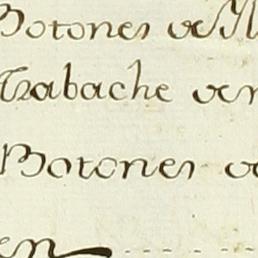 Botones de
Azabache de
Botones de
en